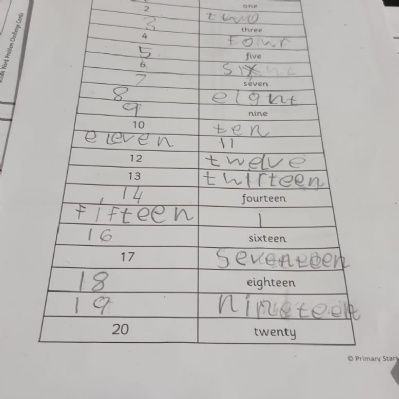 one
2 two
3 three
4 four
5 five
6 six
7 seven
8 eight
9 nine
10 ten
eleven 11
12 twelve
13 thirteen
14 fourteen
fifteen 1
16 sixteen
17 seventeen
18 eighteen
19 nineteen
20 twenty
© Primary Stars